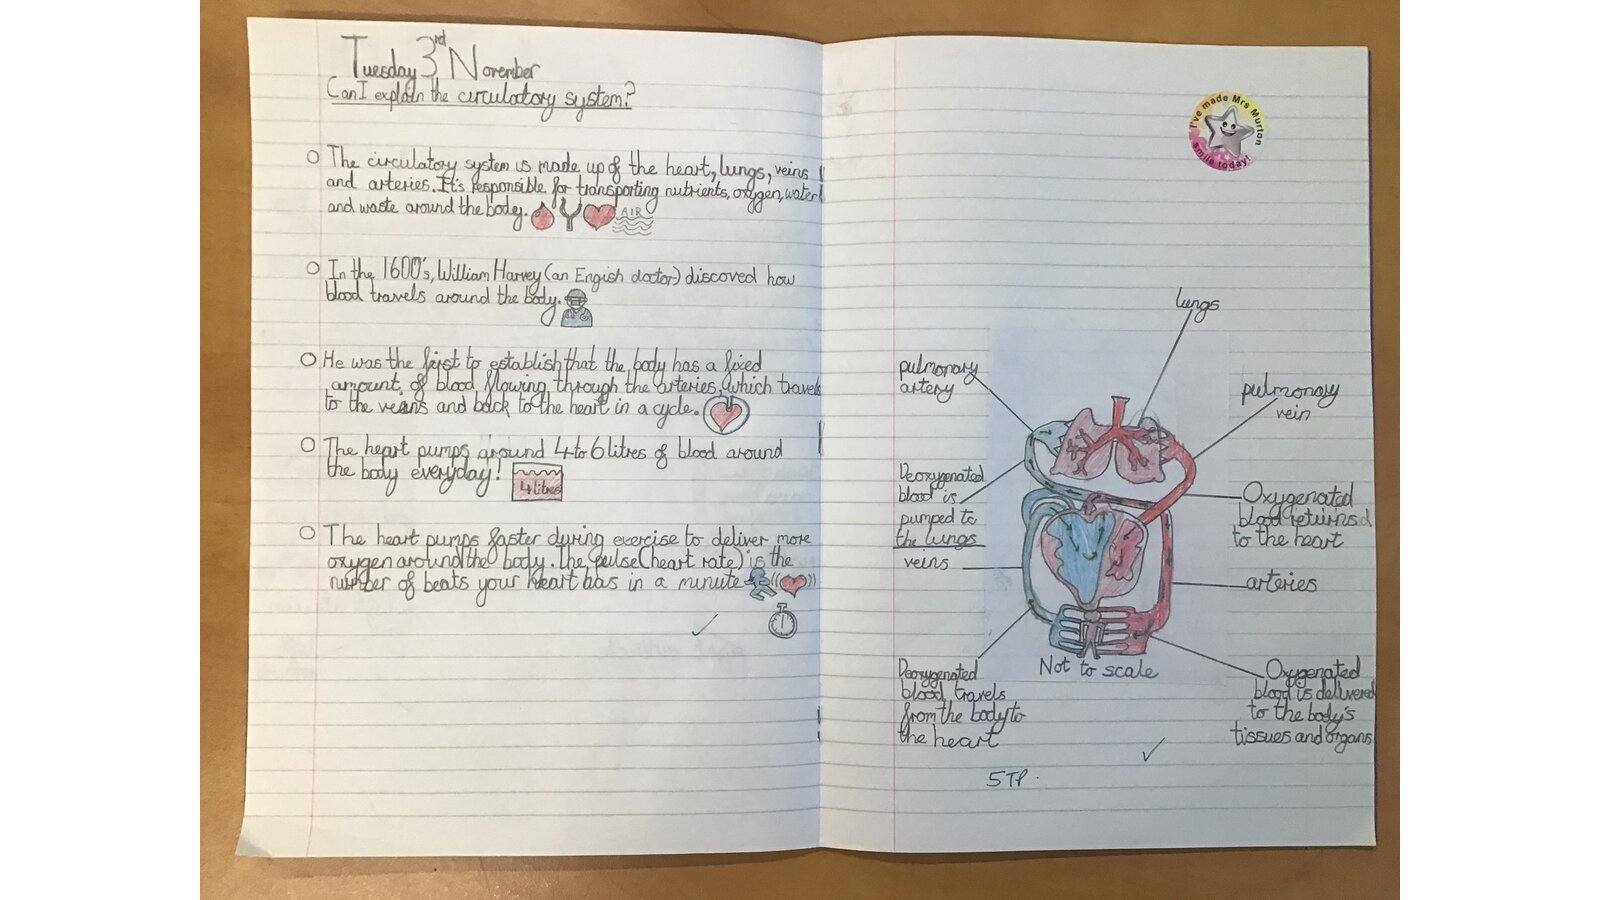 Tuesday 3rd November
Can I explain the circulatory system?
The circulatory system is made up of the heart, lungs, veins
and arteries. It's responsible for transporting nutrients, oxygen, water
and waste around the body.
AIR
In the 1600's, William Harvey (an Engish doctor) discovered how
blood travels around the body.
He was the first to establish that the body has a fixed
amount of blood flowing through the arteries, which travels
to the veians and back to the heart in a cycle.
The heart pumps around 4 to 6 litres of blood around
the body everyday!
4 litres
The heart pumps faster during exercise to deliver more
oxygen around the body. The pulse (heart rate) is the
number of beats your heart has in a minute
I've made Mrs Murton
smile today!
lungs
pulmonary
artery
pulmonary
vein
Deoxygenated
blood is
pumped to
the lungs
Oxygenated
blood returned
to the heart
veins
arteries
Deoxygenated
blood travels
from the body to
the heart
Not to scale
Oxygenated
blood is delivered
to the body's
tissues and organs
5TP.